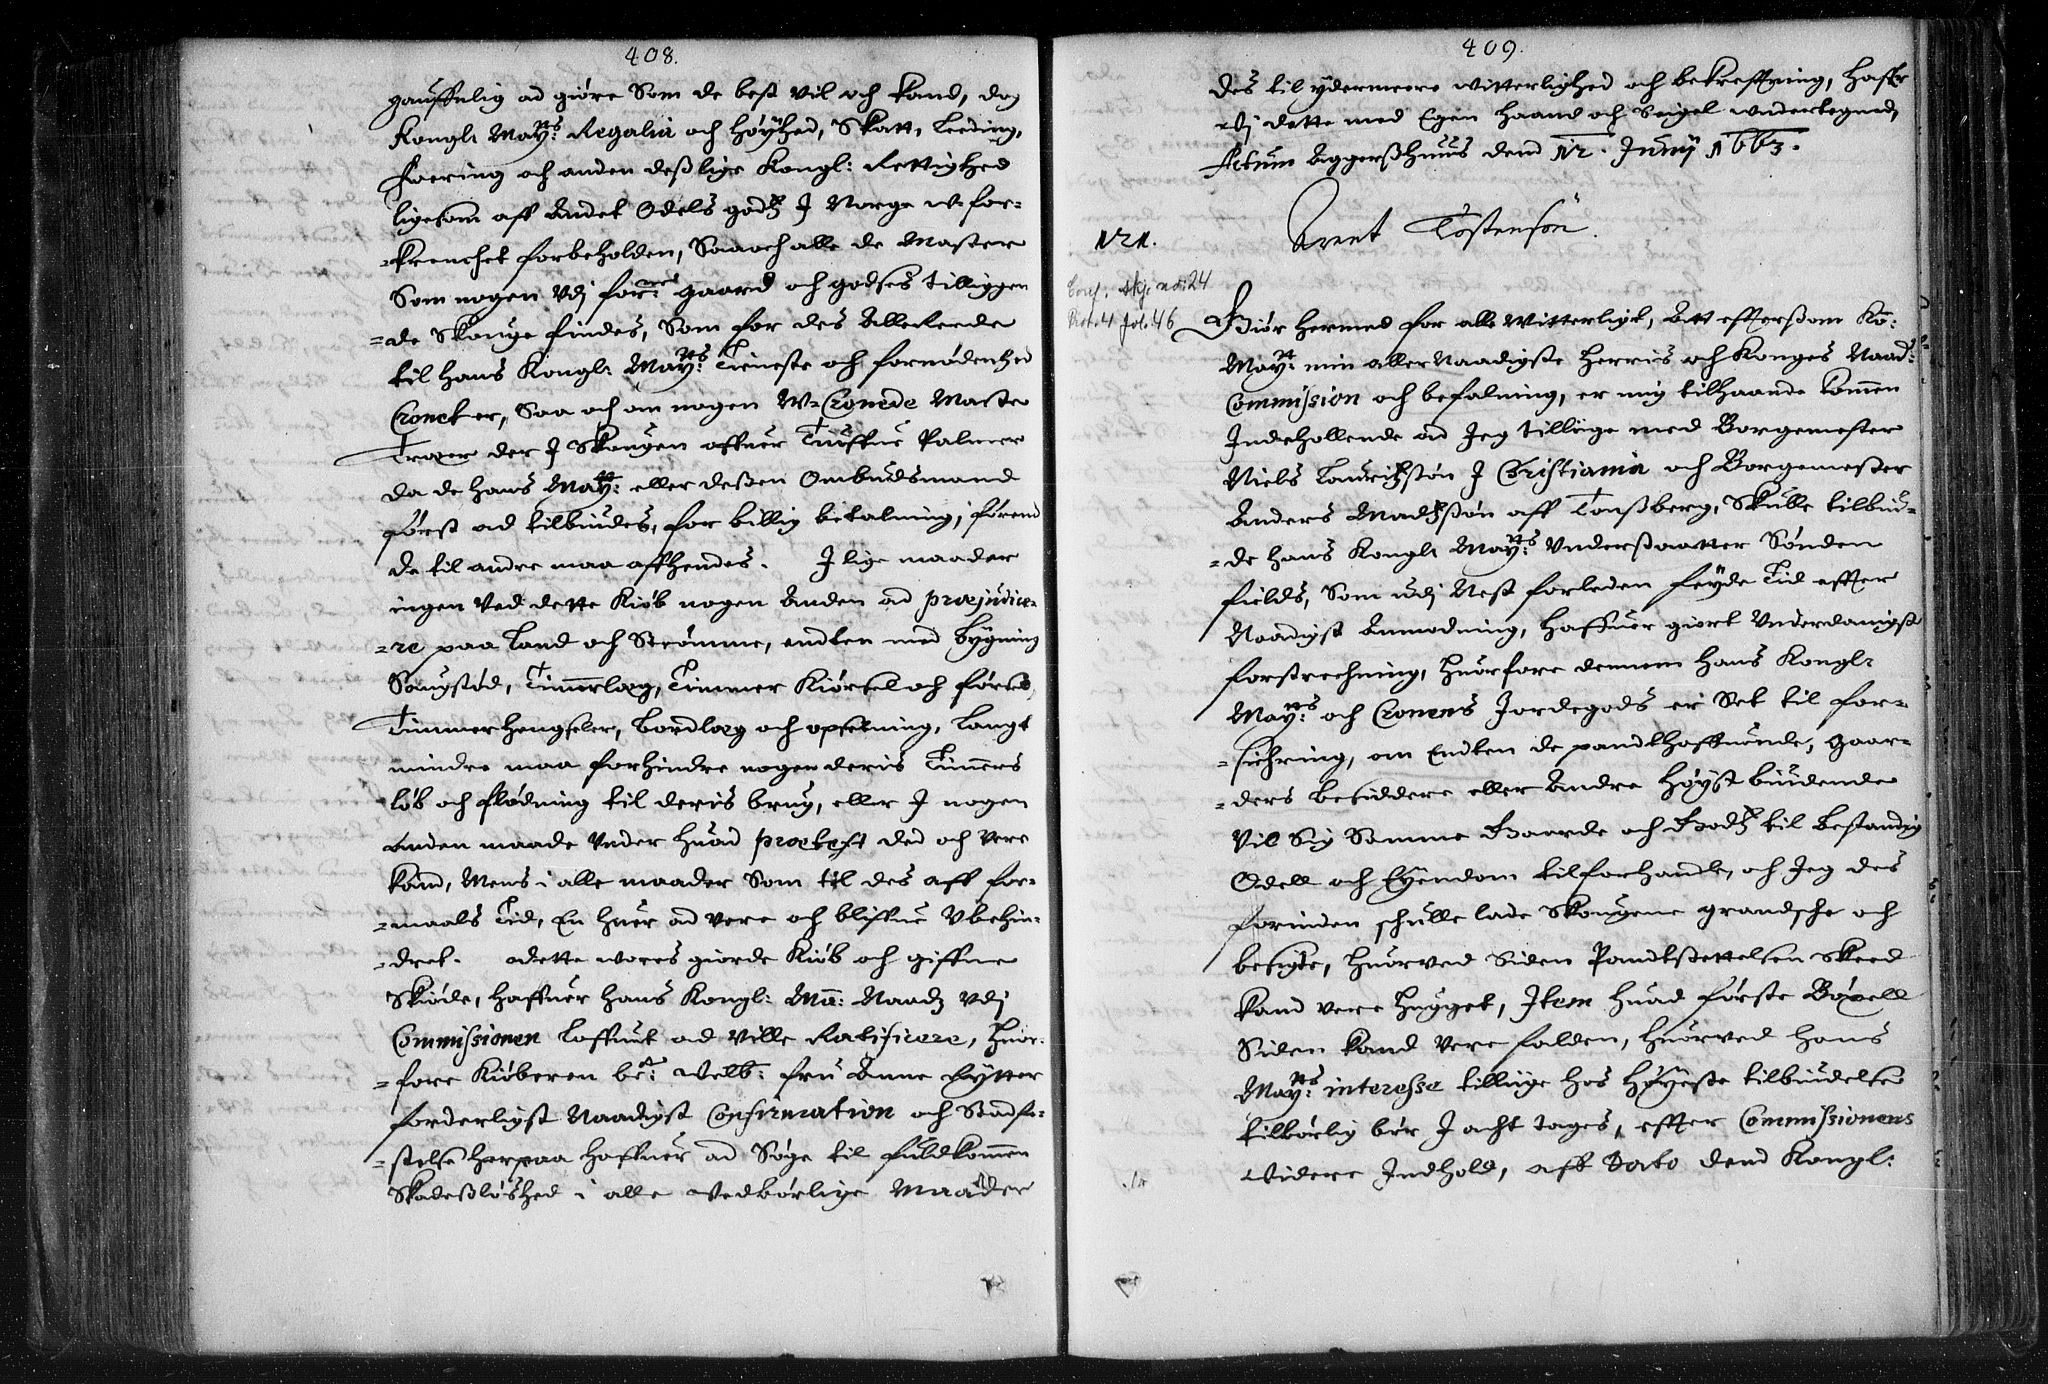 408.
gauffnlig ad giøre Som de best vil och kand, dog
Kongl: May:tts Regalia och Høyhed, Skatt, Leeding,
Foering och anden deßlige Kongl: Rettighed
ligesom aff Andet Odels godtz J Norge u-for-
-krenchet forbeholden, Saa och alle de Master
Som nogen Vdj for:ne gaard och godses tilliggen
-de Skouge findes, Som for des Allereede
til hans Kongl: May:tts Tieneste och fornødenhed
Cronet er, Saa och om nogen W-Cronede Maste
Træer der J Skougen offuer Tiuffue Palmer
da de hans May:tt eller deßen Ombudsmand
først ad tilbiudes, for billig betalning, førend
de til andre maa affhendes. J lige maader
ingen Ved dette Kiøb nogen Anden ad præjudice-
-re paa Land och Strømme, endten med Bygning
Saugstød, Timmerlaeg, Timmer Kiørsel och førsel,
Timmer hengseler, Bordlaeg och opsetning, Langt
mindre maa forhindre nogen deris Timers
løb och flødning til deris brug, eller J nogen
anden maade Vnder huad prætext ded och Vere
kand, Mens i alle maader Som til des aff for-
-maals Tid, En huer ad Vere och bliffue Vbehin-
-dret. dette wores giorde Kiøb och giffne
Skiøde, haffuer hans Kongl: Ma: Naadz Vdj
Commissionen Loffuet ad Ville Ratificere, Huor-
-fore Kiøberen be:te Welb: Fru Anne Lytter
forderligst Naadigst Confirmation och Stadfe-
-stelse herpaa haffuer ad Søge til fuldkommen
Skadesløshed i alle Vedbørlige Maader
409.
des til ydermeere Witterlighed och bekreffning, Haffr
Vj dette med Egen Haand och Seigel undertegned,
Actum Aggershuus dend 12. Junij 1663.
Arent Tostensøn.
121.
Conf. skj. no: 24
Pk. 4 fol. 46
Giør hermed for alle Witterligt, Att efftersom Ko:
May:tt min aller Naadigste Herris och Konges Naad:
Commission och befalning, er mig tilhaande kommen
Indehollende ad Jeg tillige med Borgemester
Niels Lauridtzsøn J Christiania och Borgemester
Anders Madtzsøn aff Tønsberg, Skulle tilbiu-
-de hans Kongl: May:tts Vndersaatter Sønden
fields, Som udj Nest forleden feyde Tid effter
Naadigst Anmodning, haffuer giort Vnderdanigst
forstrechning, huorfore dennem hans Kongl:
May:tts och Cronens Jordegods er Set til for-
-sichring, om Endten de pandthaffuende, gaar-
-ders besiddere eller Andre høyst biudende
Vil Sig Samme Gaarde och Godtz til bestandig
Odell och Eyendom tilforhandle, och Jeg des
forinden schulle lade Skougene grandsche och
besigte, huorved Siden Pandtsettelsen skeed
kand Vere hugget, Item huad første Boxell
Siden kand Vere falden, huorved hans
May:tts interesse tillige hos Høyeste tilbiudelse
tilbørlig bør J acht tages, effter Commissionens
Widere Indhold, aff Dato dend Kongl: